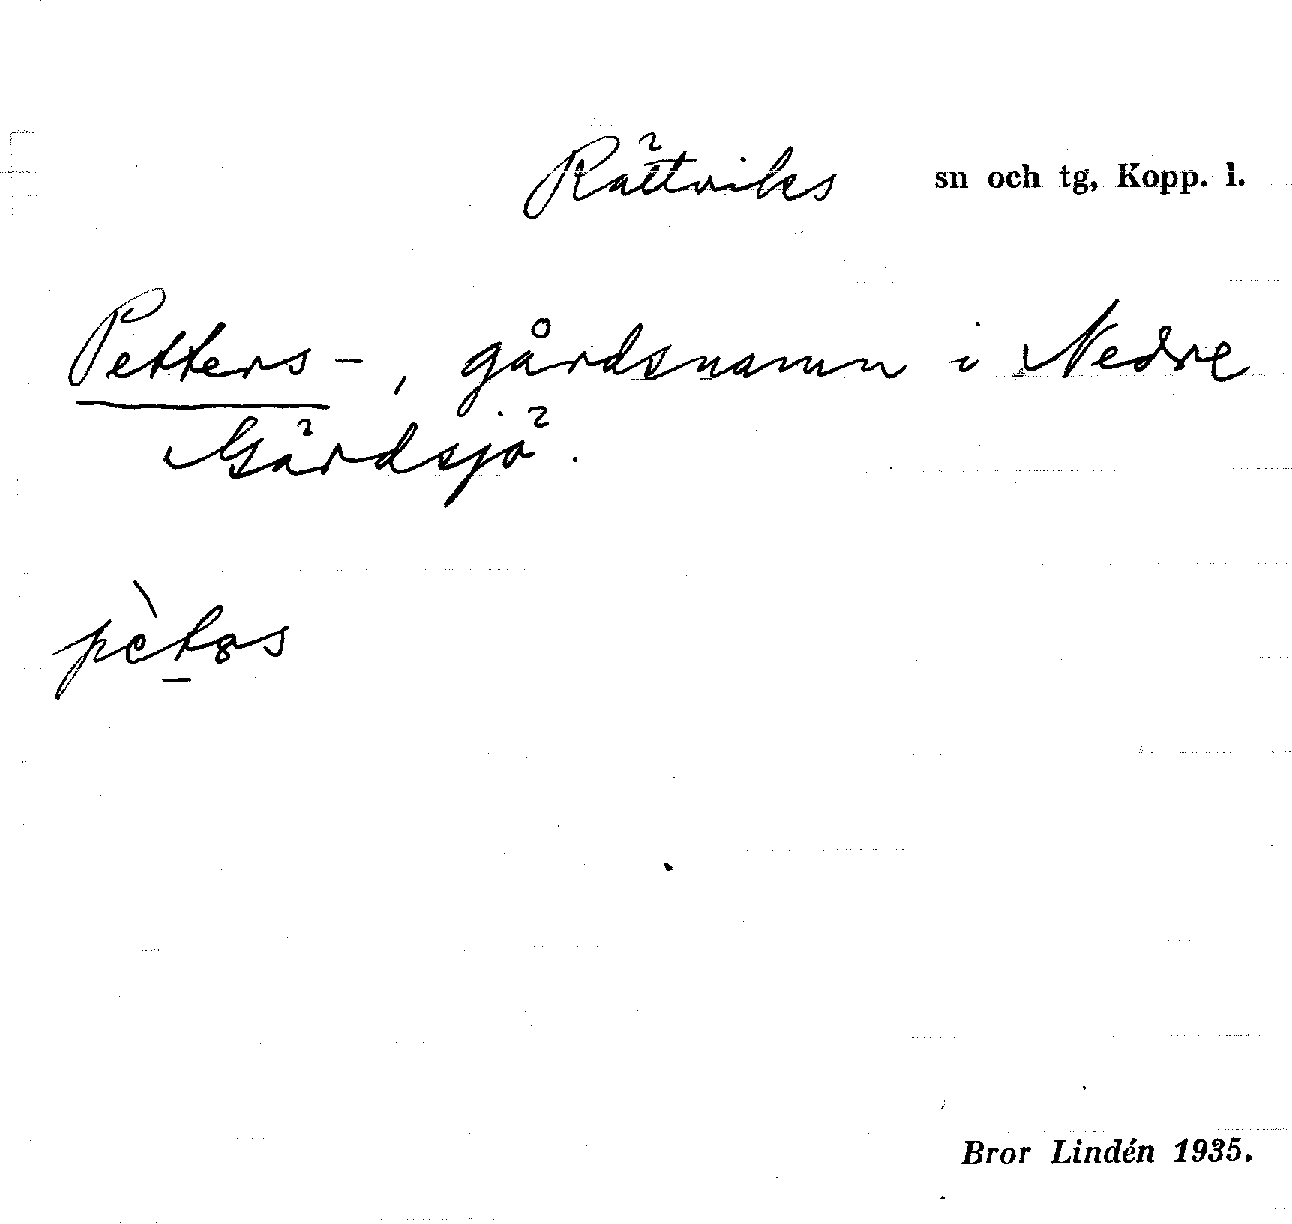 Rättviks sn och tg, Kopp. l.
Petters-, gårdsnamn i Nedre
Gärdsjö.
pètɷs
Bror Lindén 1935.